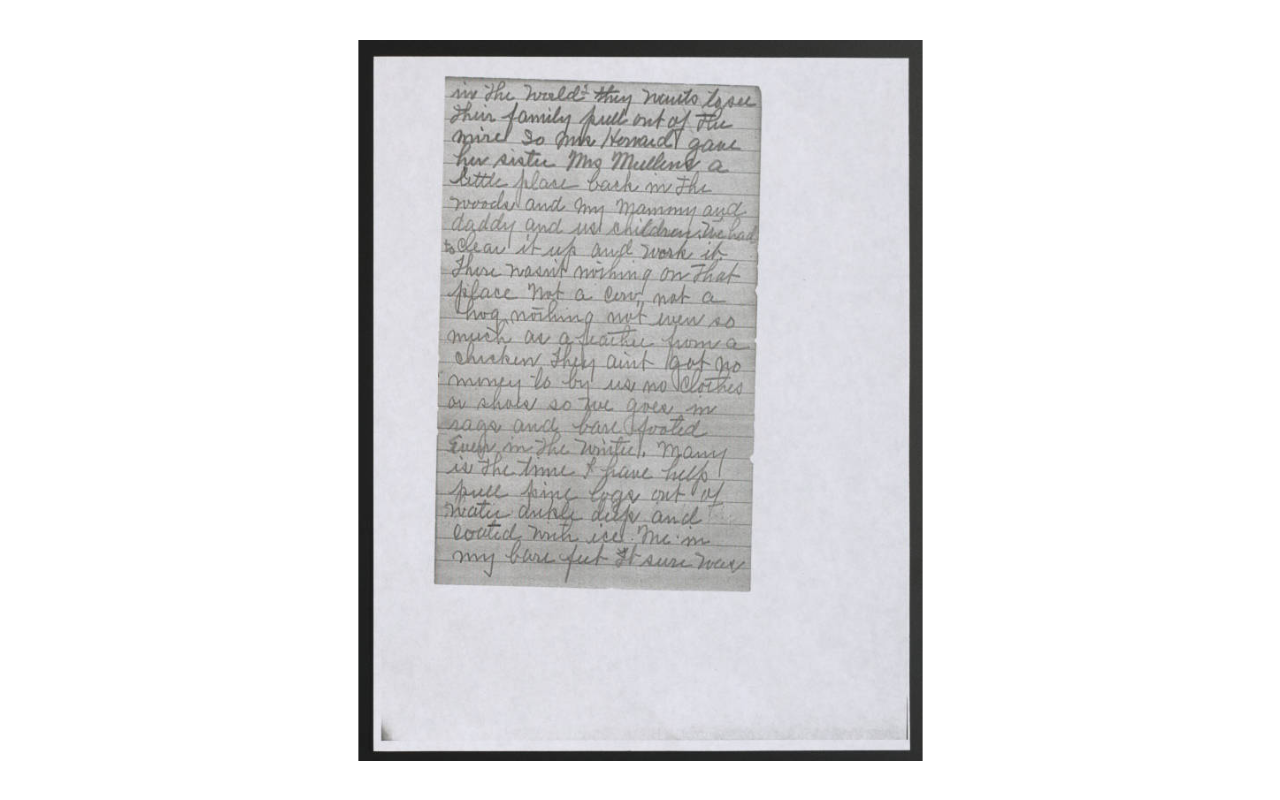 in the World they wants to see
their family pull out of the
mire So Mrs Howard gave
her sister Mrs Mullens a
little place back in the
woods and my Mammy and
daddy and us children we had
to clear it up and work it
There wasn't nothing on that
place not a cow, not a
hog, nothing not even so
much as a feather from a
chicken They aint got no
money to by us no clothes
or shoes so we goes in
rags and bare footed
Even in the winter. Many
is the time I have help
pull pine logs out of
water ankle deep and
coated with ice. Me in
my bare feet It sure was